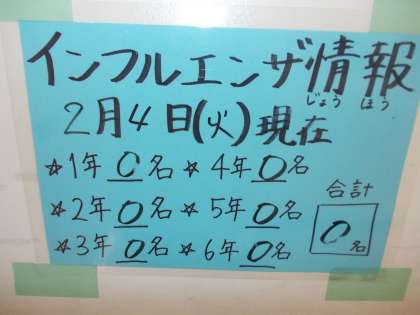 インフルエンザ情報
じょう ほう
2月4日(火)現在
☆1年 0名 ☆4年 0名
☆2年 0名 ☆5年 0名
☆3年 0名 ☆6年 0名
合計
0名